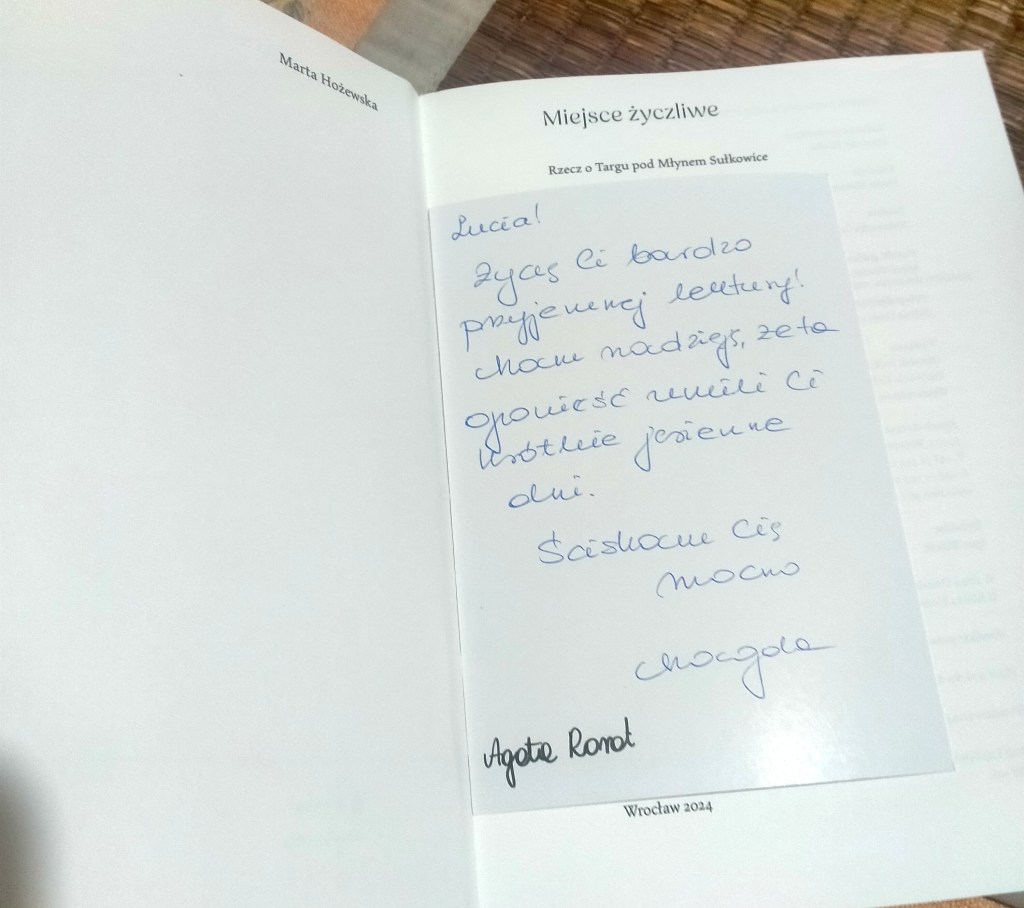 Marta Hożewska
Miejsce życzliwe
Rzecz o Targu pod Młynem Sułkowice
Lucia!
Życzę Ci bardzo
przyjemnej lektury!
Mam nadzieję, że ta
opowieść umili Ci
krótkie jesienne
dni.
Ściskam Cię
mocno
Magda
Agata
Wrocław 2024